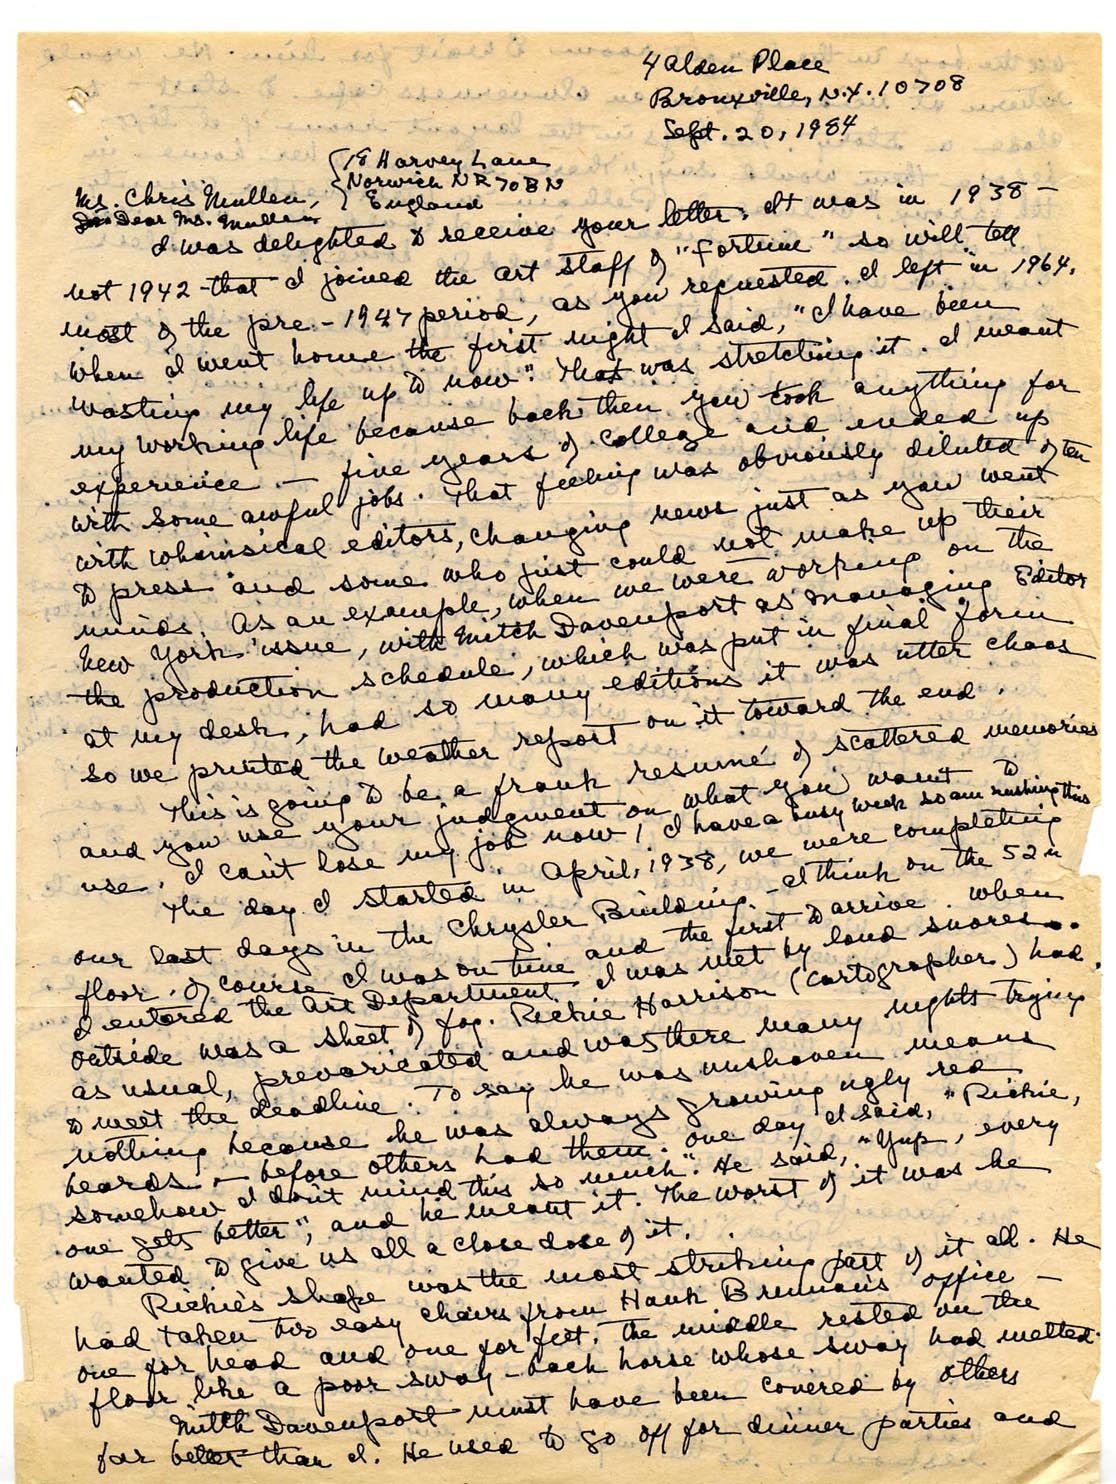 4 Alden Place
Bronxville, N.Y. 10708
Sept. 20, 1984
18 Harvey Lane
Norwich NR70BN
England
Ms. Chris Mullen,
Dear Ms. Mullen
I was delighted to receive your letter. It was in 1938 -
not 1942 - that I joined the art staff of "Fortune" so will tell
most of the pre - 1947 period, as you requested. I left in 1964.
When I went home the first night I said, "I have been
wasting my life up to now". That was stretching it. I meant
my working life because back then you took anything for
experience - five years of college and ended up
with some awful jobs. That feeling was obviously diluted often
with whimsical editors, changing news just as you went
to press and some who just could not make up their
minds. As an example, when we were working on the
New York issue, with Mitch Davenport as Managing Editor
the production schedule, which was put in final form
at my desk, had so many editions it was utter chaos
so we printed the weather report on it toward the end.
This is going to be a frank resumé of scattered memories
and you use your judgment on what you want to
use. I can't lose my job now! I have a busy week so am rushing this
The day I started in April, 1938, we were completing
our last days in the Chrysler Building - I think on the 52n
floor. Of course I was on time and the first to arrive. When
I entered the Art Department I was met by loud snores...
outside was a sheet of fog. Richie Harrison (cartographer) had,
as usual, prevaricated and was there many nights trying
to meet the deadline. To say he was unshaven means
nothing because he was always growing ugly red
beards - before others had them. One day I said, "Richie,
somehow I don't mind this so much". He said, "Yup, every
one gets better", and he meant it. The worst of it was he
wanted to give us all a close dose of it.
Richie's shape was the most striking part of it all. He
had taken two easy chairs from Hank Brennan's office -
one for head and one for feet. The middle rested on the
floor like a poor sway-back horse whose sway had melted.
Mitch Davenport must have been covered by others
far better than I. He used to go off for dinner parties and